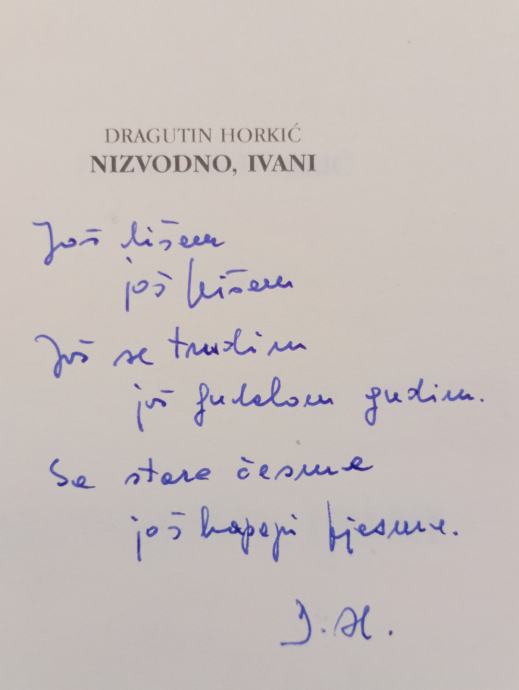 DRAGUTIN HORKIĆ
NIZVODNO, IVANI
Još dišem
još pišem
Još se trudim
još gudalom gudim.
Sa stare česme
još kapaju pjesme.
D. H.